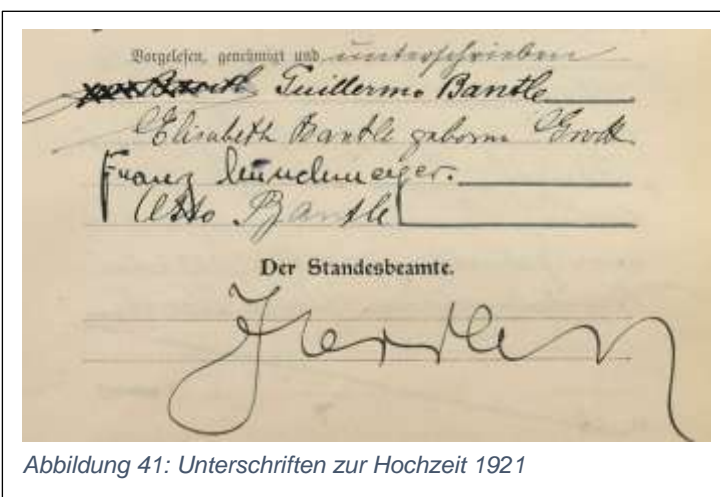 Vorgelesen, genehmigt und unterschrieben
Guillermo Bantle
Elisabeth Bantle geborne Grodt
Franz
Otto Bantle
Der Standesbeamte.
Abbildung 41: Unterschriften zur Hochzeit 1921